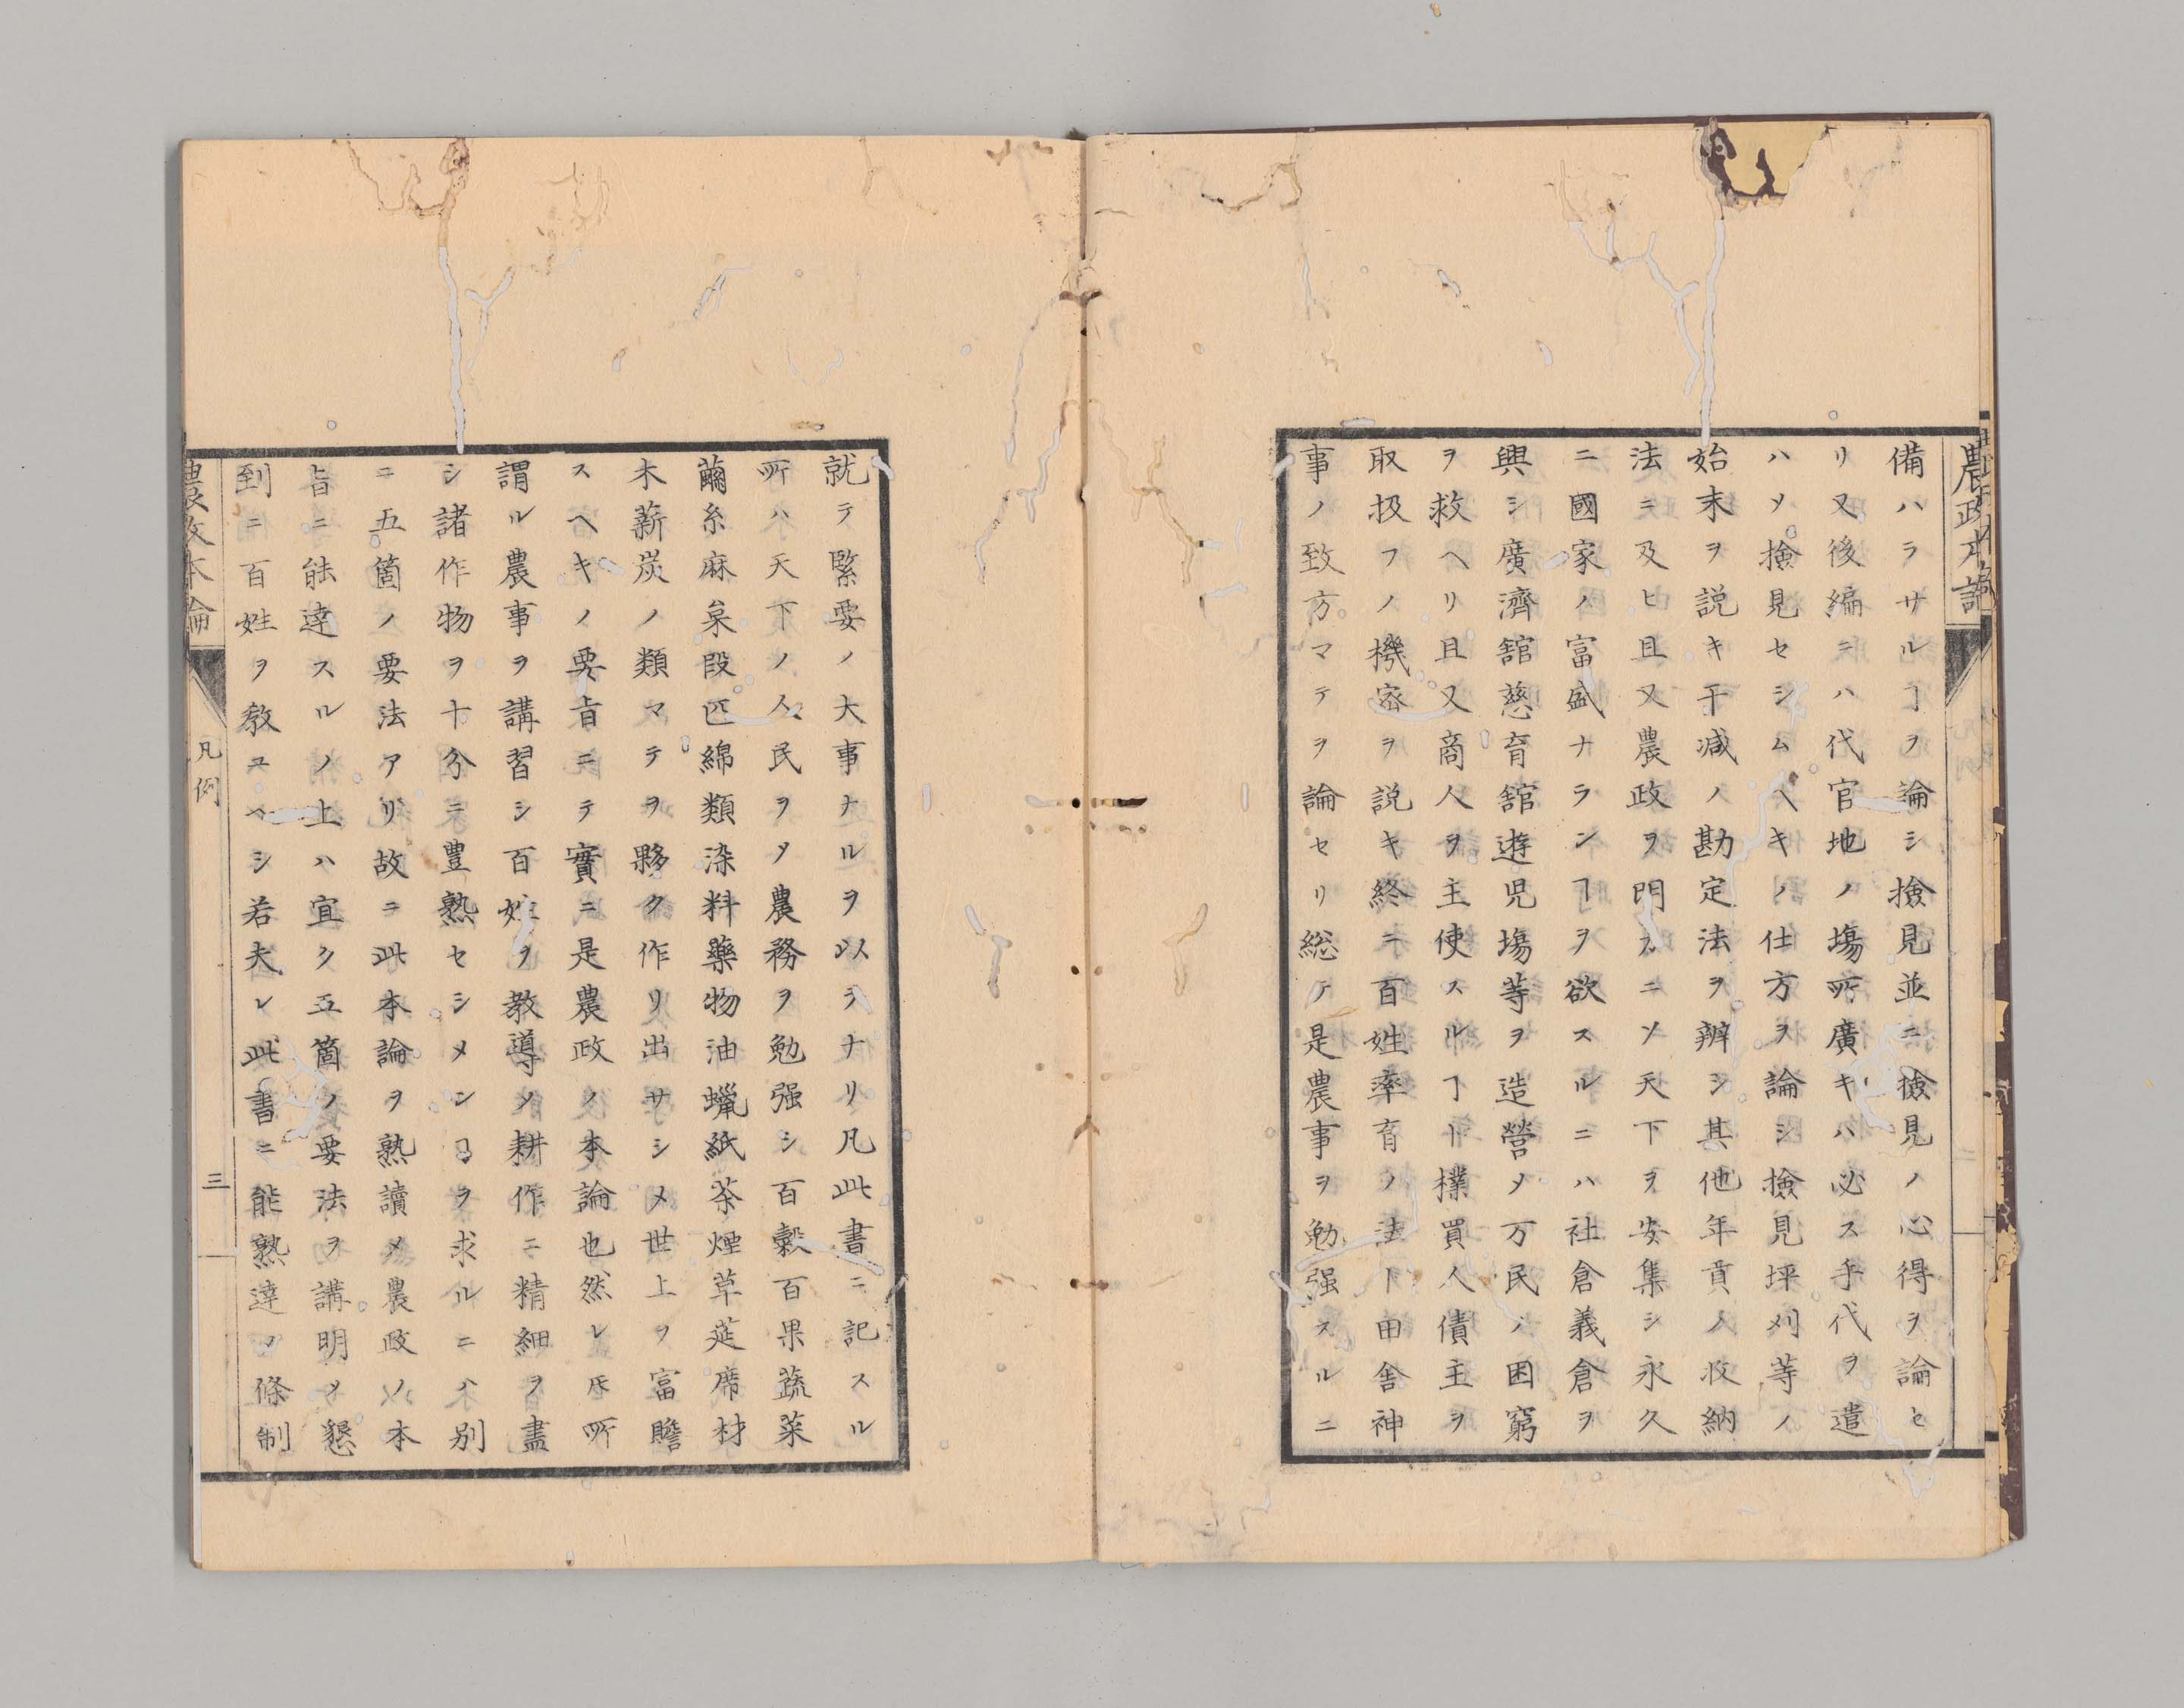 農政本論
備ハラサルヿヲ論シ撿見並ニ撿見ノ心得ヲ論セ
リ又後編ニハ代官地ノ塲所廣キハ必ス手代ヲ遣
ハメ撿見セシムヘキノ仕方ヲ論シ撿見坪刈等ノ
始末ヲ説キ干減ノ勘定法ヲ辨シ其他年貢ノ收納
法ニ及ヒ且又農政ヲ門カニソ天下ヲ安集シ永久
ニ國家ノ富盛ナランヿヲ欲スルニハ社倉義倉ヲ
興シ廣濟舘慈育舘遊児塲等ヲ造營メ万民ノ困窮
ヲ救ヘリ且又商人ヲ主使スルヿ㆘擈買人債主ヲ
取扱フノ機密ヲ説キ終ニ百姓率育ノ法ト田舎神
事ノ致方マテヲ論セリ総テ是農事ヲ勉强スルニ
就テ緊要ノ大事ナルヲ以テナリ凡此書ニ記スル
所ハ天下ノ人民ヲメ農務ヲ勉强シ百糓百果蔬菜
繭糸麻枲段匹綿類染料藥物油蠟紙茶煙草莚席材
木薪炭ノ類マテヲ夥ク作リ出サシメ世上ヲ富贍
スヘキノ要旨ニテ實ニ是農政ノ本論也然レ𪜈所
謂ル農事ヲ講習シ百姓ヲ教導メ耕作ニ精細ヲ盡
シ諸作物ヲ十分ニ豊熟セシメンコヲ求ルニハ别
ニ五箇ノ要法アリ故ニ此本論ヲ熟讀メ農政ノ本
旨ニ能達スルノ上ハ宜ク五箇ノ要法ヲ講明メ懇
到ニ百姓ヲ教ユヘシ若夫レ此書ニ能熟達メ條制
農政本論
凡例
三